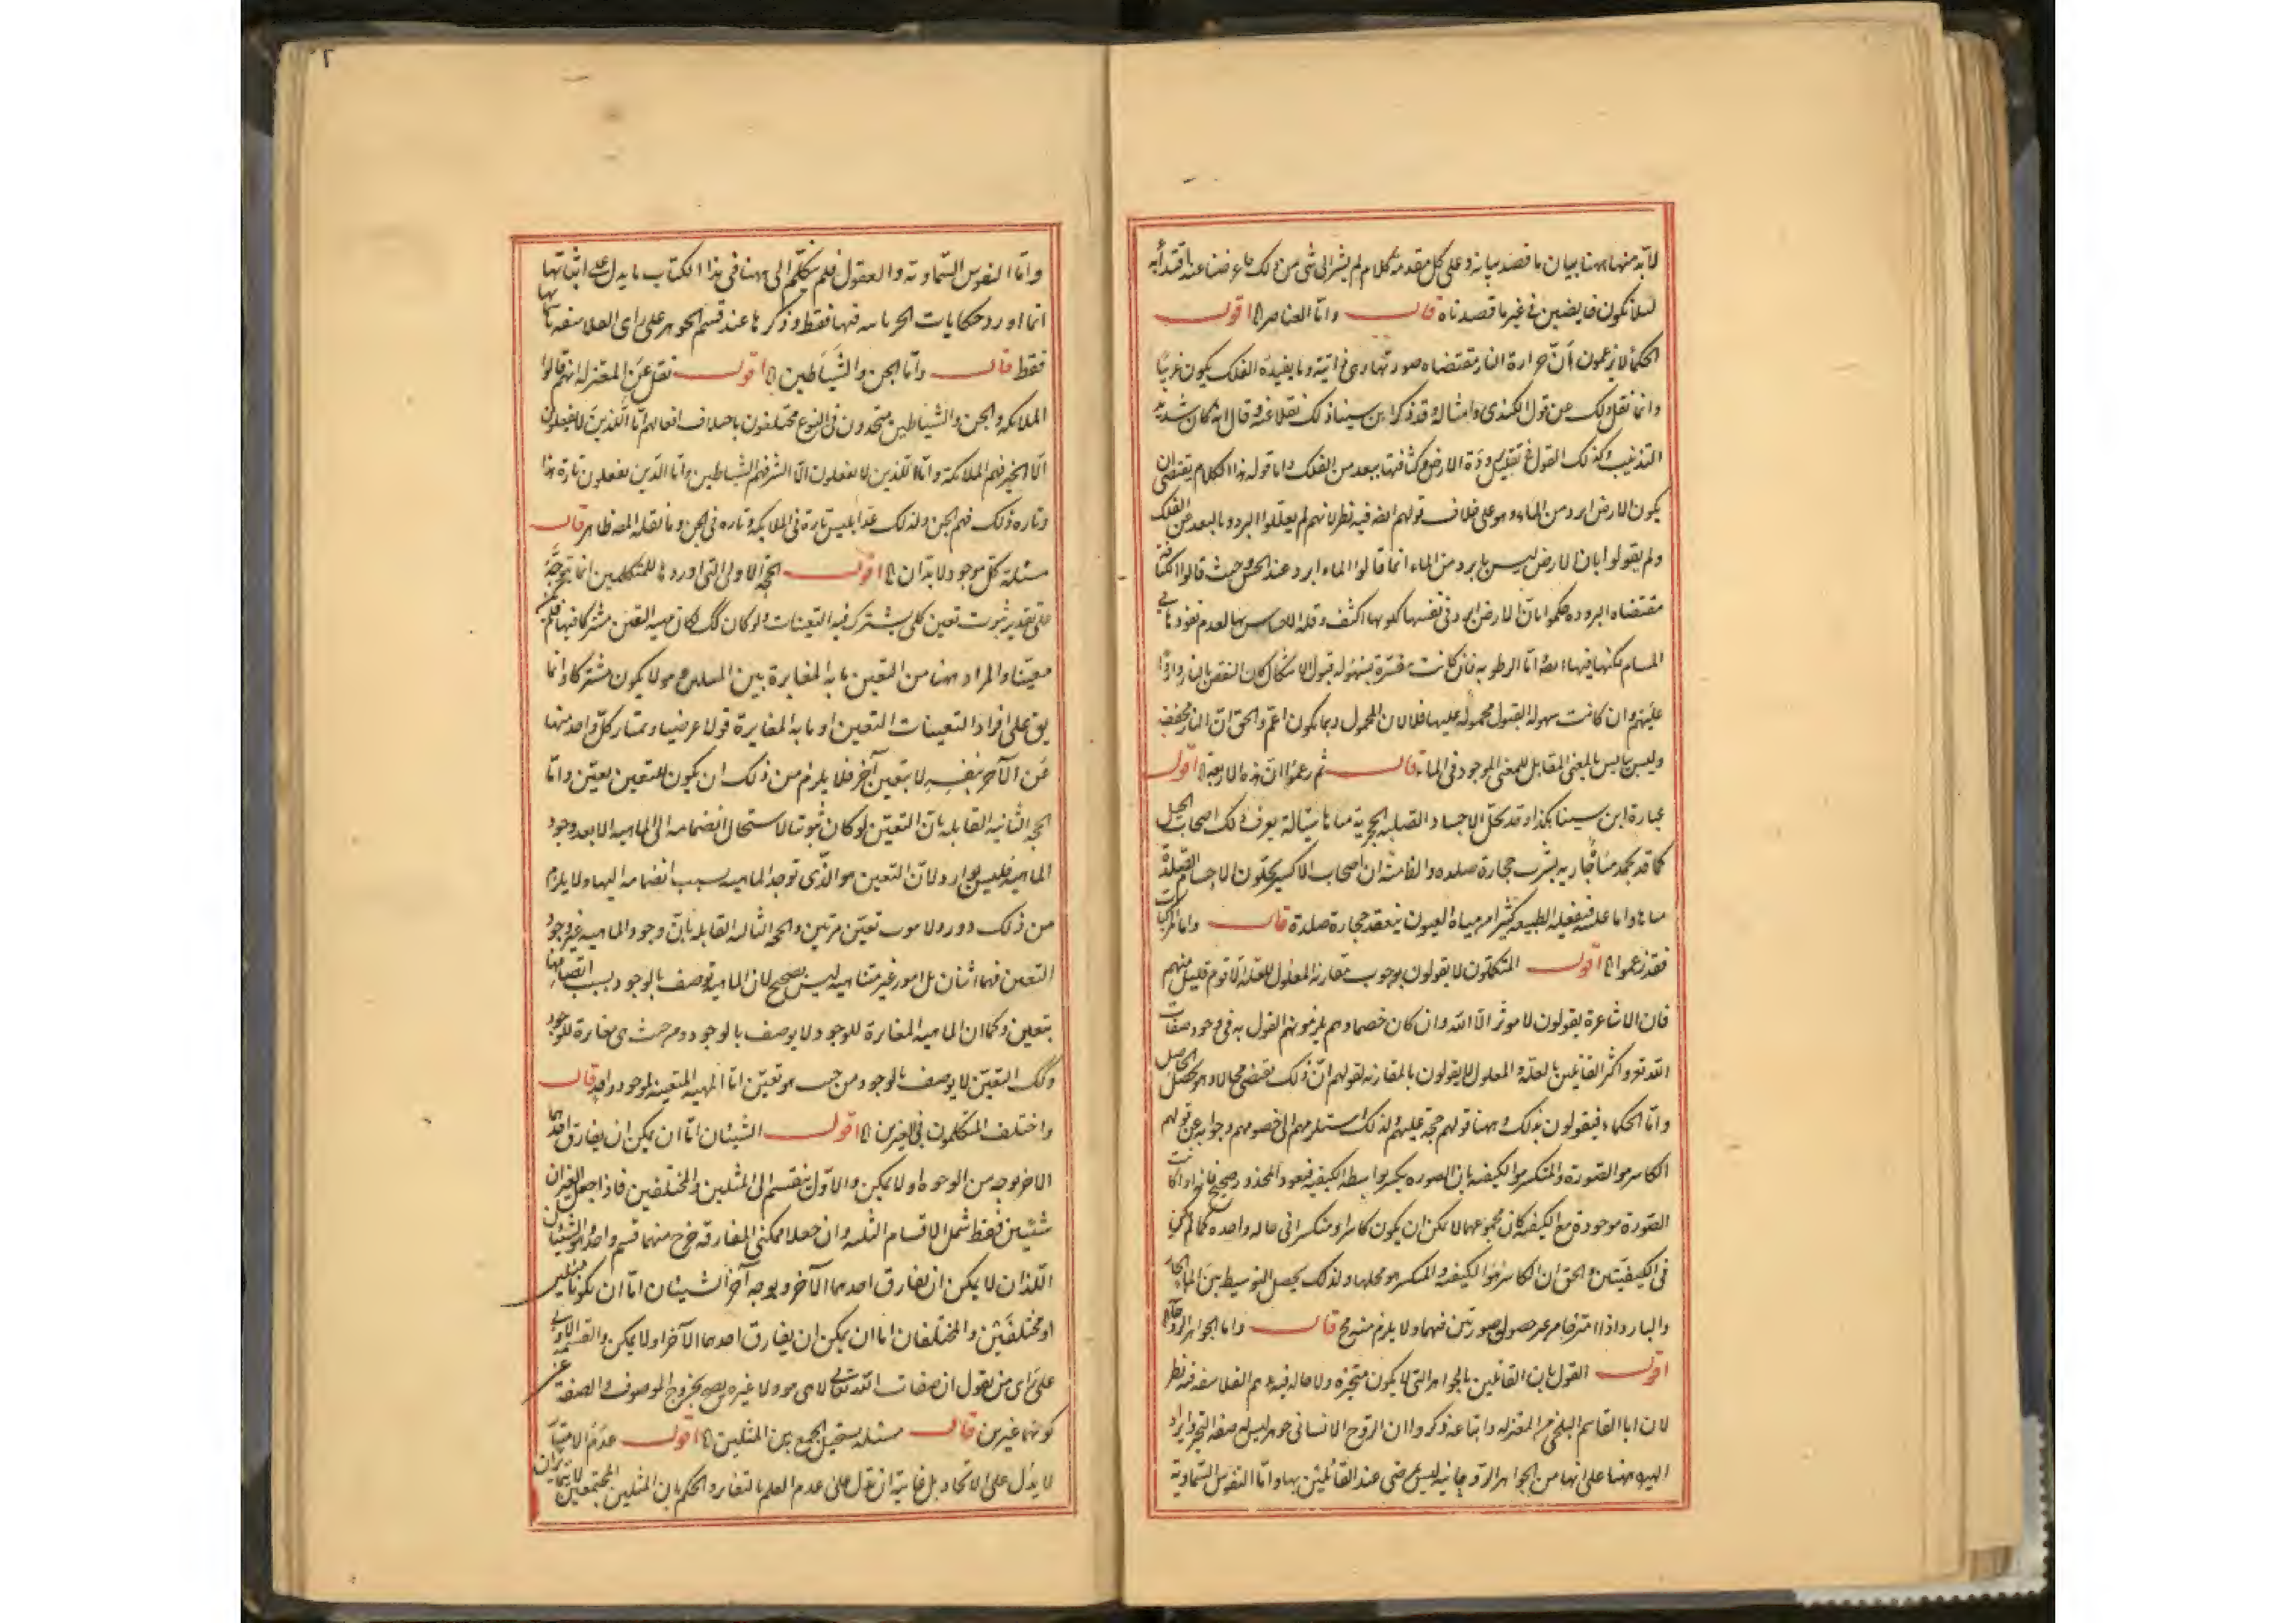 لابد منها ههنا بيان ما قصد بيانه وعلى كل مقدمة كلام لم يشر الى شئ من ذلك ما عرضنا عنه اقتداء به
لئلا نكون خايضين فى غير ما قصدناه قال واما العناصر الخ اقول
الحكماء لا يزعمون أن حرارة النار مقتضاه صورتها وهى ذاتية وما يفيده الفلك يكون غريبا
وانما نقل ذلك عن قول الكندى وامثاله وقد ذكر ابن سينا ذلك نقلا عنه وقال انه كان شديد
التذبذب وكذلك القول فى تعليل برودة الارض وكثافتها ببعد من الفلك واما قوله هذا الكلام يقتضى ان
يكون الارض ابرد من الماء وهو على خلاف قولهم ايضه فيه نظر لانهم لم يعللوا البرد وبالبعد عن الفلك
ولم يقولوا بان الارض ليس بابرد من الماء انما قالوا الماء ابرد عند الحس وحيث قالوا الكثافة
مقتضاه البروده حكموا بان الارض ابرد فى نفسها لكونها اكثف وقلة الاحساس بها لعدم نفوذها فى
المسام لكنها فيها ايضه اما الرطوبه فان كانت مفسرة بسهوله قبول الاشكال كان النقض بالنار واردا
عليهم وان كانت سهوله القبول محموله عليها فلا لان المحمول ربما يكون اعم والحق ان النار مجفف
وليس بيابس بالمعنى المقابل للمعنى الموجود فى الماء قال ثم زعموا ان هذه الاربعة الخ اقول
عبارة ابن سينا هكذا وقد تحلل الاجساد الصلبه الحجرية مياها سيالة يعرف ذلك اصحاب الحيل
كما قد تجمد مياه جاريه يشرب حجارة صلده والفاضل ان اصحاب الاكسير يحلون الاجسام الصلدة
مياها واما عكسه فيفعله الطبيعه كثيرا من مياه العيون ينعقد حجارة صلدة قال واما المركبات
فقد زعموا الخ اقول المتكلمون لا يقولون بوجوب مقارنه المعلول للعلة الا قوم قليل منهم
فان الاشاعرة يقولون لا موثر الا الله وان كان خصماوهم يلزمونهم القول به فى وجود صفات
الله تعه واكثر القائلين بالعله والمعلول لا يقولون بالمقارنه لقولهم ان ذلك يقتضى محالا وهو تحصيل الحاصل
واما الحكماء فيقولون بذلك وههنا قولهم حجة عليهم ولذلك استلزمهم الى خصومهم وجوابه عن قولهم
الكاسر هو الصورة والمنكسر هو الكيفيه بان الصوره يكسر بواسطة الكيفيه فيعود المحذور صحيح فانه اذا كانت
الصورة موجودة مع الكيفيه كان مجموعهما لا يمكن ان يكون كاسرا ومنكسرا فى حاله واحده كما لم يكن
فى الكيفيتين والحق ان الكاسر هو الكيفيه والمنكسر هو محلها ولذلك يحصل التوسيط بين الماء الحار
والبارد اذا امتزجا من غير حصول صورتين فيهما ولا يلزم منه مح قال واما الجواهر الروحانيه الخ
اقول القول بان القائلين بالجواهر التى لا يكون متحيزه ولا حاله فيه هم الفلاسفه فيه نظر
لان ابا القاسم البلخى من المعتزله واتباعه ذكروا ان الروح الانسانى جوهر ليس له صفة التحيز وايراد
الهيولى ههنا على انها من الجواهر الروحانيه ليس بمرضى عند القائلين بها واما النفوس السماوية
واما النفوس السماويه والعقول فلم يتكلم الى ههنا فى هذا الكتاب ما يدل على اثباتها
انما اورد حكايات الحرمانيه فيها فقط وذكرها عند قسم الجوهر على راى الفلاسفه
فقط قال واما الجن والشياطين الخ اقول نقل عن المعتزله انهم قالوا
الملائكه والجن والشياطين متحدون فى النوع مختلفون باختلاف افعالهم اما الذين لا يفعلون
الا الخير فهم الملائكة واما الذين لا يفعلون الا الشر فهم الشياطين واما الذين يفعلون تارة هذا
وتاره ذلك فهم الجن ولذلك عد ابليس تارة فى الملايكه وتاره فى الجن وما نقله المصه ظاهر قال
مسئلة كل موجود لابد ان الخ اقول الحجة الاولى التى اوردها للمتكلمين انما يتوجه
على تقدير ثبوت تعين كلى يشترك فيه التعينات ولو كان كك لكان مهيه التعين مشتركا فيها فلم يكن
معينا والمراد ههنا من التعين ما به المغايرة بين المتماثلين وهو لا يكون مشتركا وانما
يق على افراد التعينات التعين او ما به المغايرة قولا عرضيا ويمتاز كل واحد منها
عن الآخر بنفسه لا بتعين آخر فلا يلزم من ذلك ان يكون للتعين تعين واما
الحجه الثانيه القايله بان التعين لو كان ثبوتيا لاستحال انضمامه الى الماهيه الا بعد وجود
الماهيه فليس بوارد لان التعين هو الذى توجد الماهيه بسبب انضمامه اليها ولا يلزم
من ذلك دور ولا موت تعين مرتين والحجه الثالثه القايله بان وجود الماهيه غير وجود
التعين فهما اثنان بل امور غير متناهيه ليس بصحيح لان الماهيه توصف بالوجود بسبب اتصافها
بتعين وكما ان الماهيه المغايرة للوجود لا يوصف بالوجود من حيث هى مغايرة للوجود
وكك التعين لا يوصف بالوجود من حيث هو تعين اما المهيه المتعينه لوجود واحد قال
واختلف المتكلمون فى الغيرين الخ اقول الشيئان اما ان يمكن ان يفارق احدهما
الاخر بوجه من الوجوه او لا يمكن والاول ينقسم الى المثلين والمختلفين فاذا جعل الغيران
شيئين فقط شمل الاقسام الثلثه وان جعلا ممكنى المفارقه خرج منهما قسم واحد هو الشيئان
اللذان لا يمكن ان يفارق احدهما الآخر وبوجه آخر الشيئان اما ان يكونا مثلين
او مختلفين والمختلفان اما ان يمكن ان يفارق احدهما الآخر او لا يمكن والقسمه الاولى
على راى من يقول ان صفات الله تعالى لا هى هو ولا غيره يصح بخروج الموصوف والصفة عن
كونهما غيرين قال مسئله يستحيل الجمع بين المثلين الخ اقول عدم الامتياز
لا يدل على الاتحاد بل غايته ان تدل على عدم العلم بالتغاير والحكم بان المثلين المجتمعين لا يتمايزان